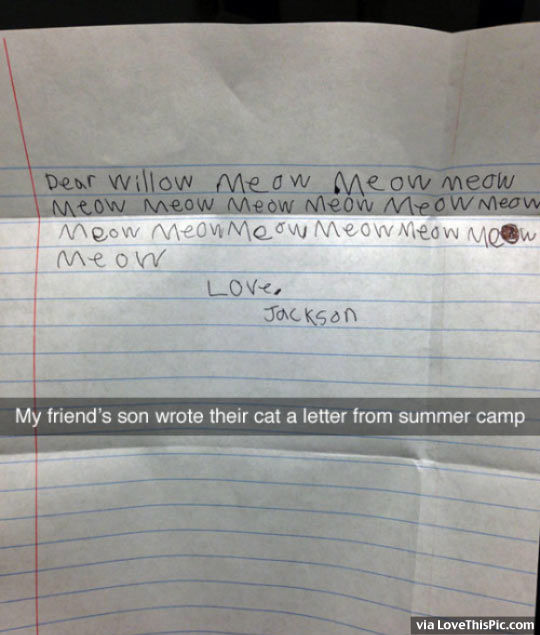 Dear Willow Meow Meow meow
Meow Meow Meow Meow Meow Meow
Meow Meow Meow Meow Meow Meow
Meow
Love,
Jackson
My friend's son wrote their cat a letter from summer camp
via LoveThisPic.com